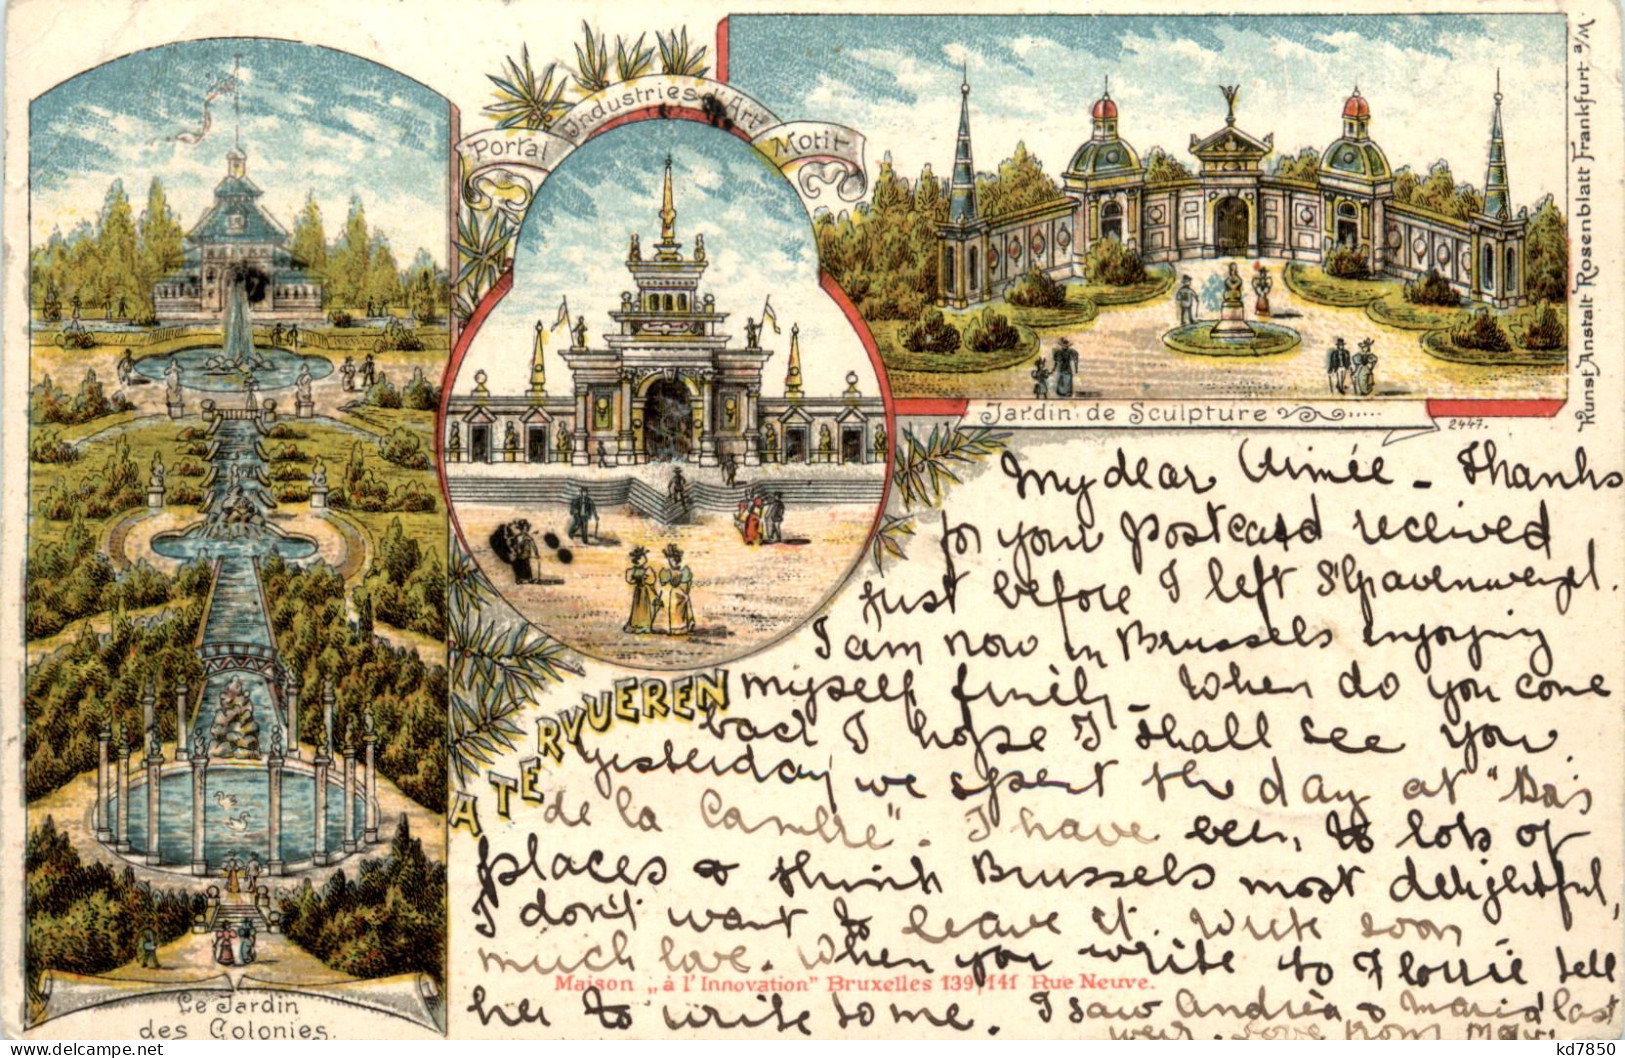 Portal Industries d'Art Motif
Jardin de Sculpture
2447.
Kunst Anstalt Rosenblatt Frankfurt a/M
My dear Aimée - Thanks
for your postcard received
just before I left S'Gravenweyel.
I am now in Brussels enjoying
myself finely. When do you come
back I hope I shall see you.
A TERVUEREN
Yesterday we spent the day at "Bois
de la Cambre". I have been to lots of
places & think Brussels most delightful,
I don't want to leave it. Write soon
much love. When you write to Florrie tell
her to write to me. I saw Andréa & Maria last
week. Love from May.
Maison „à l'Innovation" Bruxelles 139/141 Rue Neuve.
Le Jardin
des Colonies.
kd7850